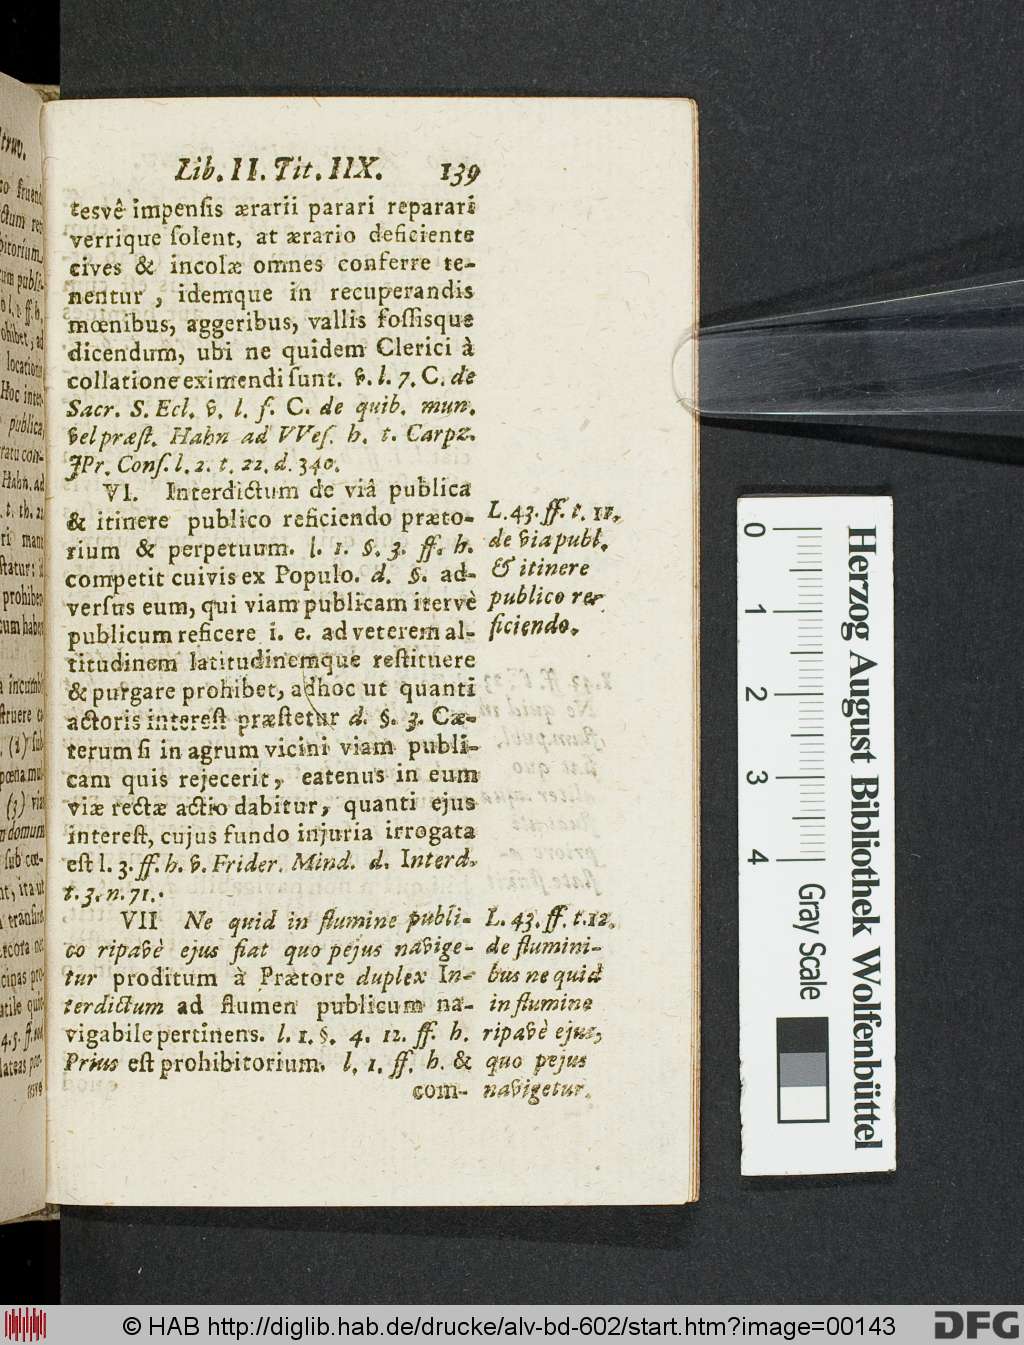 Lib. II. Tit. IIX. 139
tesvê impensis ærarii parari reparari
verrique solent, at ærario deficiente
cives & incolæ omnes conferre te-
nentur, idemque in recuperandis
mœnibus, aggeribus, vallis fossisque
dicendum, ubi ne quidem Clerici à
collatione eximendi sunt. v. l. 7. C. de
Sacr. S. Ecl. v. l. f. C. de quib. mun.
vel præst. Hahn ad VVes. h. t. Carpz.
JPr. Cons. l. 2. t. 22. d. 340.
VI. Interdictum de viâ publica
& itinere publico reficiendo præto-
rium & perpetuum. l. 1. §. 3. ff. h.
competit cuivis ex Populo. d. §. ad-
versus eum, qui viam publicam itervè
publicum reficere i. e. ad veterem al-
titudinem latitudinemque restituere
& purgare prohibet, adhoc ut quanti
actoris interest præstetur d. §. 3. Cæ-
terum si in agrum vicini viam publi-
cam quis rejecerit, eatenus in eum
viæ rectæ actio dabitur, quanti ejus
interest, cujus fundo injuria irrogata
est l. 3. ff. h. v. Frider. Mind. d. Interd.
t. 3. n. 71.
L. 43. ff. t. 11.
de via publ.
& itinere
publico re-
ficiendo.
VII Ne quid in flumine publi-
co ripavè ejus fiat quo pejus navige-
tur proditum à Prætore duplex In-
terdictum ad flumen publicum na-
vigabile pertinens. l. 1. §. 4. 12. ff. h.
Prius est prohibitorium. l. 1. ff. h. &
com-
L. 43. ff. t. 12.
de flumini-
bus ne quid
in flumine
ripavè ejus,
quo pejus
navigetur.
0 1 2 3 4
Gray Scale
Herzog August Bibliothek Wolfenbüttel
© HAB http://diglib.hab.de/drucke/alv-bd-602/start.htm?image=00143
DFG